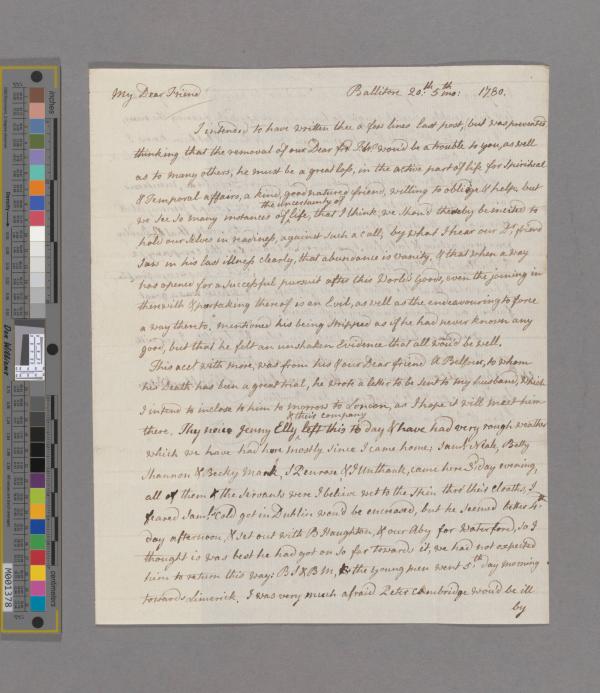 My Dear Friend
Ballitore 20th 5th mo: 1780.
I intended to have written thee a few lines last post, but was prevented
thinking that the removal of our Dear frd would be a trouble to you, as well
as to many others, he must be a great loss, in the active part of life for Spiritual
& Temporal affairs, a kind, good natured friend, willing to oblige & help; but
the uncertainty of
we see so many instances of life, that I think, we should thereby be incited to
hold our selves in readiness, against such a call, by what I hear our Dr. friend
saw in his last illness clearly, that abundance is vanity, & that when a way
has opened for a successful pursuit after this Worlds Goods, even the joining in
therewith & partaking thereof is an Evil, as well as the endeavouring to force
a way thereto, mentioned his being stripped as if he had never known any
good, but that he felt an unshaken Evidence that all would be well.
This acct with more, was from his & our Dear friend to whom
his Death has been a great trial, he wrote a letter to be sent to my husband, which
I intend to inclose to him to morrow to London, as I hope it will meet him
& their company
there. They Jenny Elly left this to day & have had very rough weather
which we have had here mostly since I came home; Saml Neale, Betty
Shannon & Becky J Penrose, & J Unthank, came here 3d day evening,
all of them & the Servants were I believe wet to the Skin thro' their cloaths, I
feared Saml Cold got in Dublin would be encreased, but he seemed better 4th
day afternoon, & set out with B Haughton, & our Aby for Waterford, so I
thought it was best he had got on so far towards it, we had not expected
him to return this way: B S & B M, & the young men went 5th day morning
towards Limerick. I was very much afraid Peter Cambridge would be ill
by
inches
centimetres
Density
Don Williams
M001378